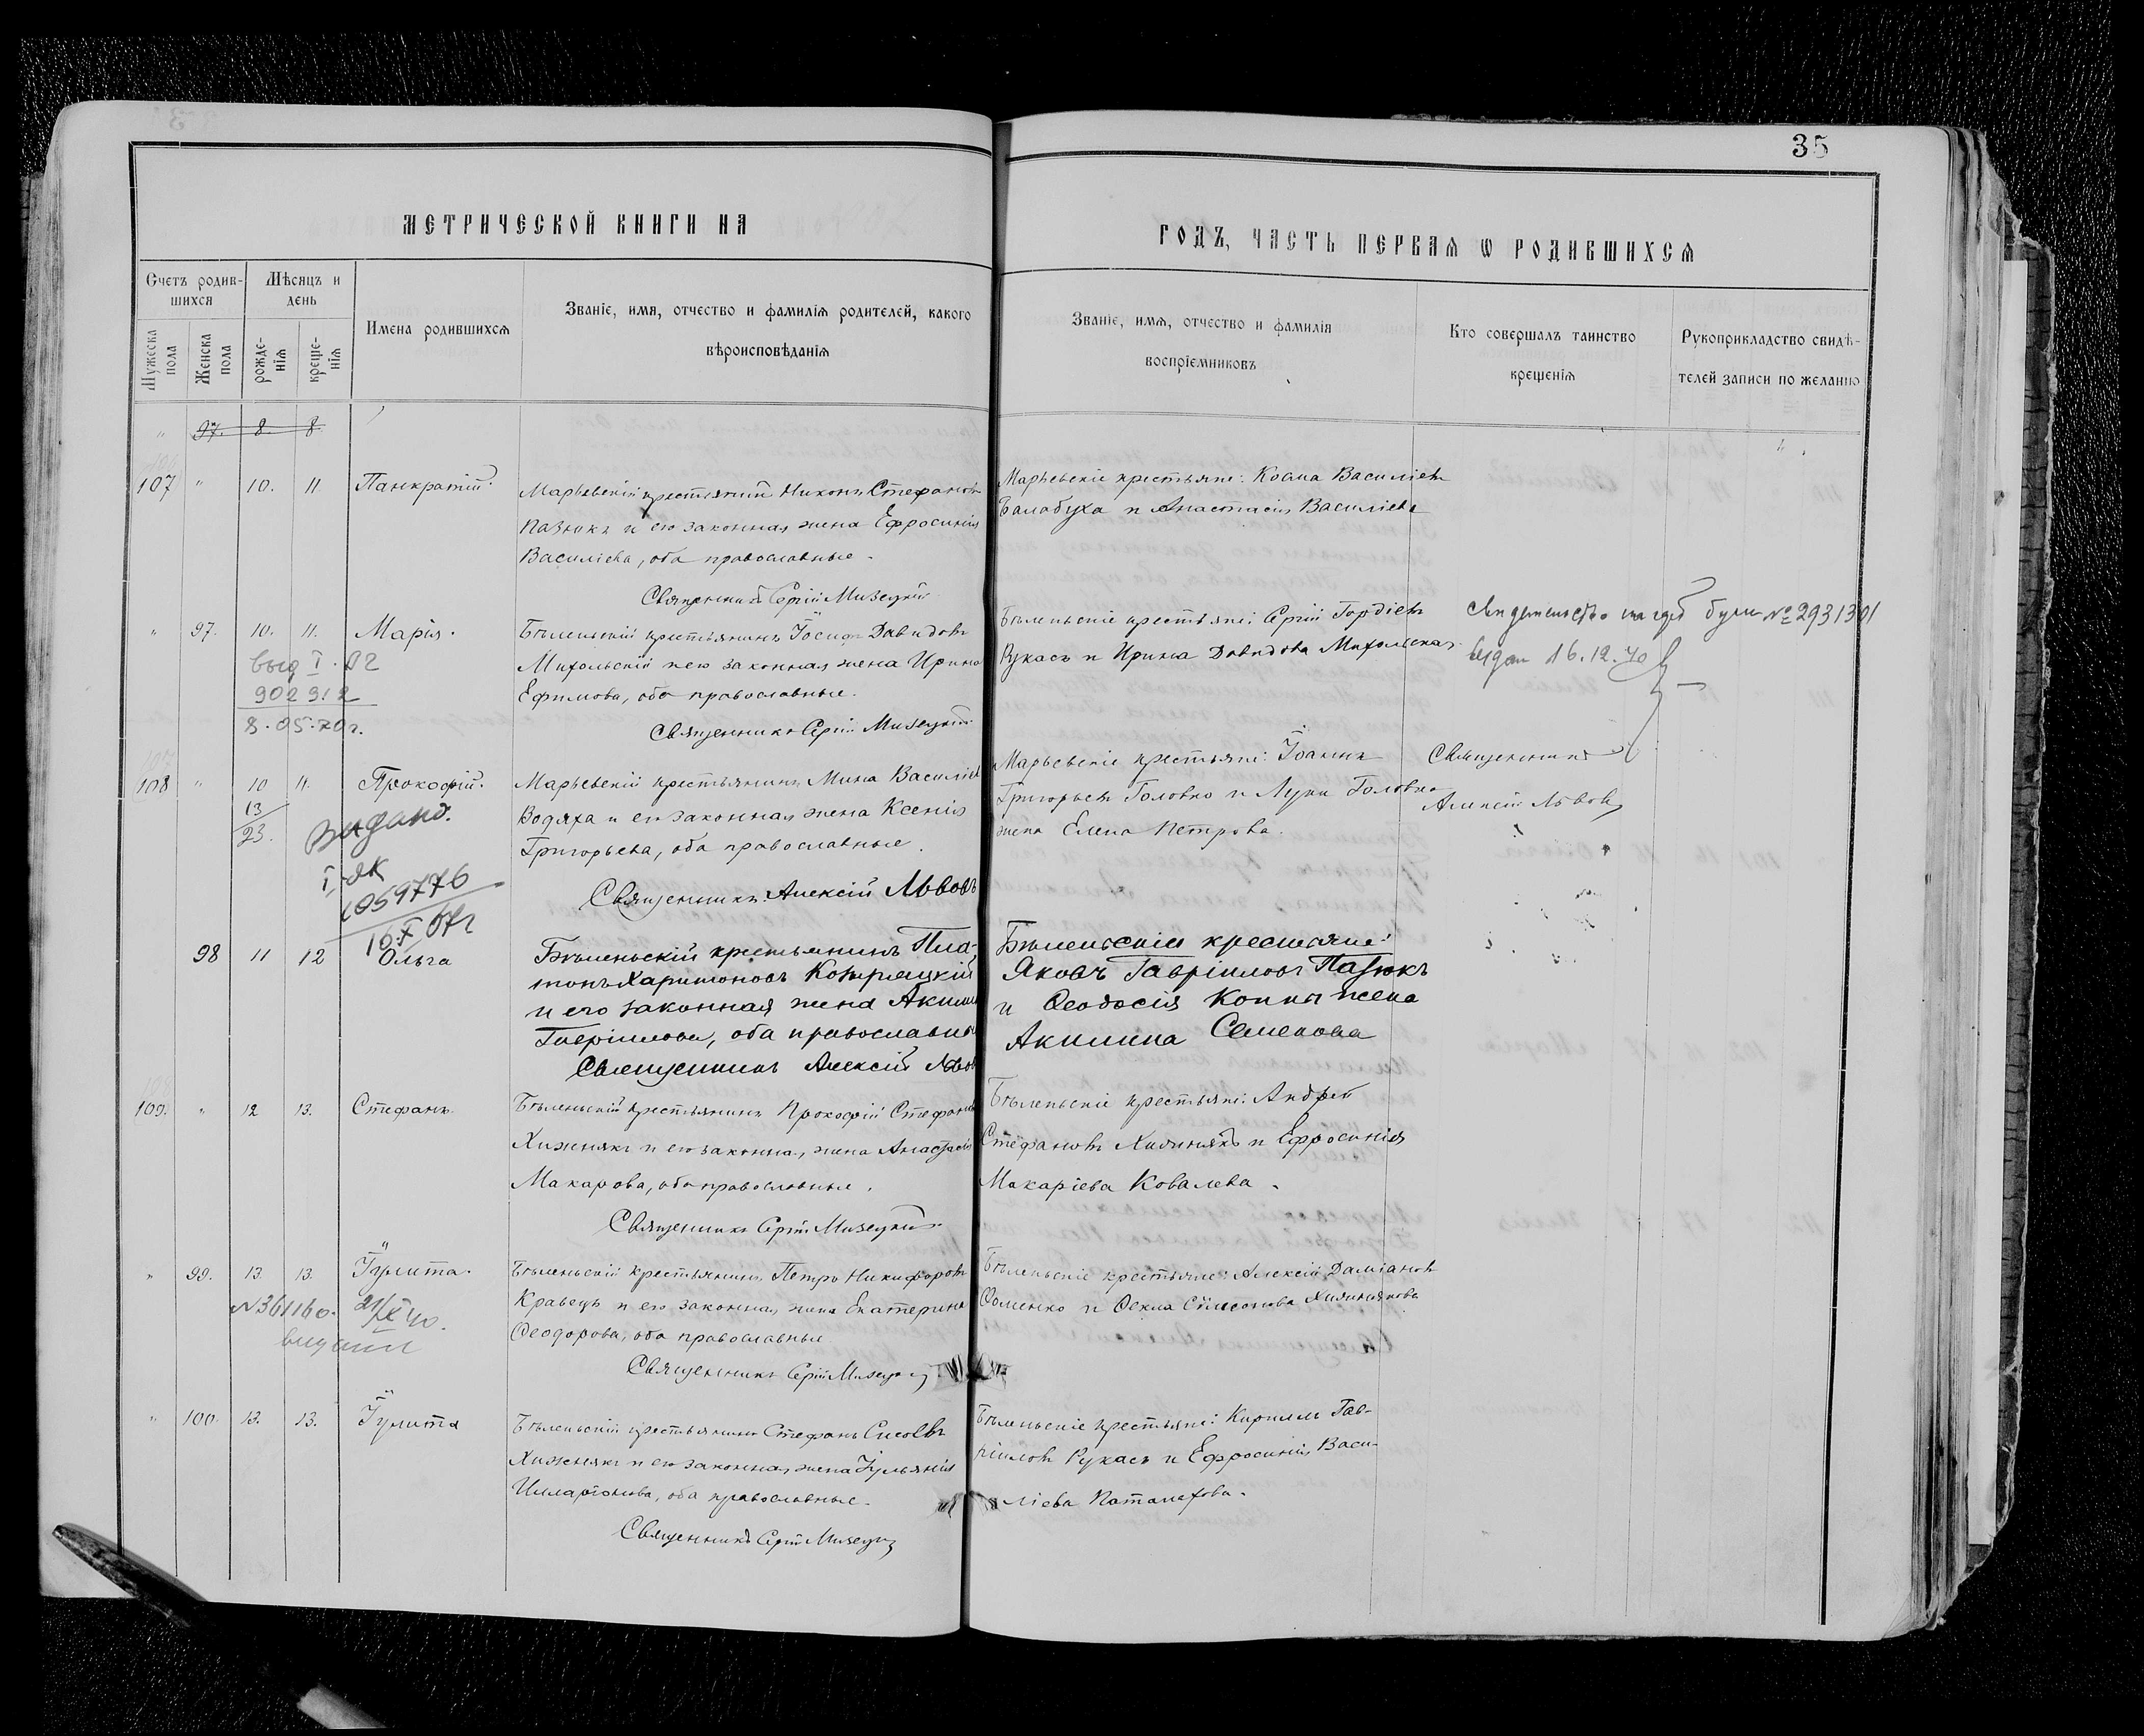 35
МЕТРИЧЕСКОЙ КНИГИ НА
ГОДЪ, ЧАСТЬ ПЕРВАЯ Ѡ РОДИВШИХСЯ
Счетъ родив-
шихся
Мѣсяцъ и
день
Мужеска
пола
Женска
пола
рожде-
нія
креще-
нія
Имена родившихся
Званіе, имя, отчество и фамилія родителей, какого
вѣроисповѣданія
Званіе, имя, отчество и фамилія
воспріемниковъ
Кто совершалъ таинство
крещенія
Рукоприкладство свидѣ-
телей записи по желанію
" 97. 8. 8.
107 " 10. 11 Панкратій.
Марьевскій крестьянинъ Никонъ Стефановъ
Пазюкъ и его законная жена Ефросинія
Василіева, оба православные.
Священникъ Сергій Мизецкій
Марьевскіе крестьяне: Косма Василіевъ
Балабуха и Анастасія Василіева
" 97. 10. 11. Марія.
выд I
902912
8.05.70г.
Бѣленьскій крестьянинъ Іосифъ Давидовъ
Михольскій и его законная жена Ирина
Ефимова, оба православные.
Священникъ Сергій Мизецкій
Бѣленьскіе крестьяне: Сергій Гордіевъ
Рукасъ и Ирина Давидова Михольская.
№ 2931301
выдан 16.12.40
108 " 10 11. Прокофій.
13
23.
Видано.
1059776
16.X 07г
Марьевскій крестьянинъ Мина Василіевъ
Водяха и его законная жена Ксенія
Григорьева, оба православные.
Священникъ Алексій Львовъ
Марьевскіе крестьяне: Іоаннъ
Григорьевъ Головко и Луки Головко
жена Елена Петрова.
Священникъ
Алексій Львовъ
98 11 12 Ольга
Бѣленьскій крестьянинъ Пла-
тонъ Харитоновъ
и его законная жена Акилина
Гавріилова, оба православные
Священникъ Алексій Львовъ
Бѣленьскіе крестьяне:
Яковъ Гавріиловъ Пазюкъ
и Феодосія жена
Акилина Семенова
109. " 12 13. Стефанъ.
Бѣленьскій крестьянинъ Прокофій Стефановъ
Хижнякъ и его законная жена Анастасія
Макарова, оба православные.
Священникъ Сергій Мизецкій.
Бѣленьскіе крестьяне: Андрей
Стефановъ Хижнякъ и Ефросинія
Макаріева Ковалева.
" 99. 13. 13. Іулита.
N361160. 21/IX 40.
Бѣленьскій крестьянинъ Петръ Никифоровъ
Кравецъ и его законная жена Екатерина
Феодорова, оба православные
Священникъ Сергій Мизецкій
Бѣленьскіе крестьяне: Алексій Даміановъ
Фоменко и Фекла Симеонова Хижнякова
" 100. 13. 13. Іулита
Бѣленьскій крестьянинъ Стефанъ Сисоевъ
Хижнякъ и его законная жена Іульянія
Илларіонова, оба православные.
Священникъ Сергій Мизецкій
Бѣленьскіе крестьяне: Кириллъ Гав-
ріиловъ Рукасъ и Ефросинія Васи-
ліева Паталахова.